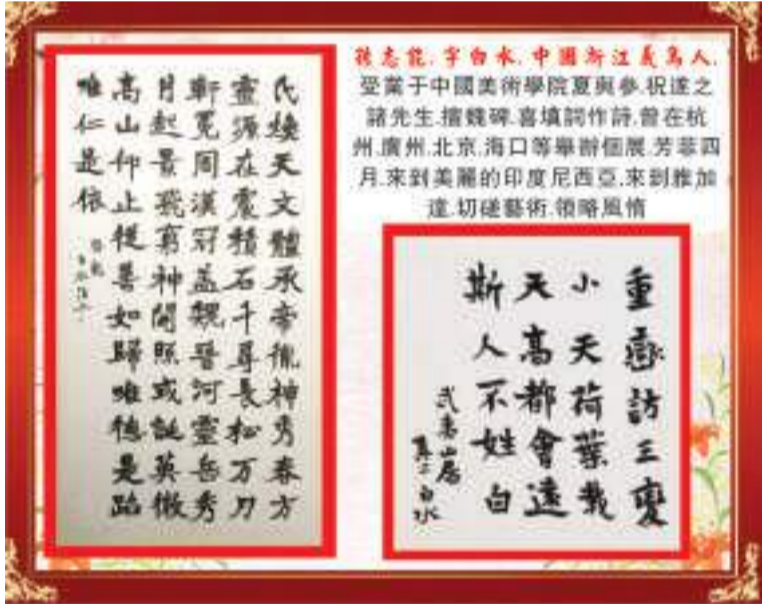 能,字白水,中國浙江義烏人,
受業于中國美術學院夏與參.祝遂之
諸先生.擅魏碑.喜填詞作詩.曾在杭
州.廣州.北京.海口等舉辦個展.芳菲四
月.來到美麗的印度尼西亞.來到雅加
達.切磋藝術.領略風情
氏煥天文體承帝胤神秀春方
靈源在震積石千尋長松万刀
軒冕周漢冠盖魏晉河靈岳秀
月起景飛窮神開照或誕英徽
高山仰止從善如歸唯德是蹈
唯仁是依
重訪三變
小天荷葉栽
天高都會遠
斯人不姓白
武夷山居
白水